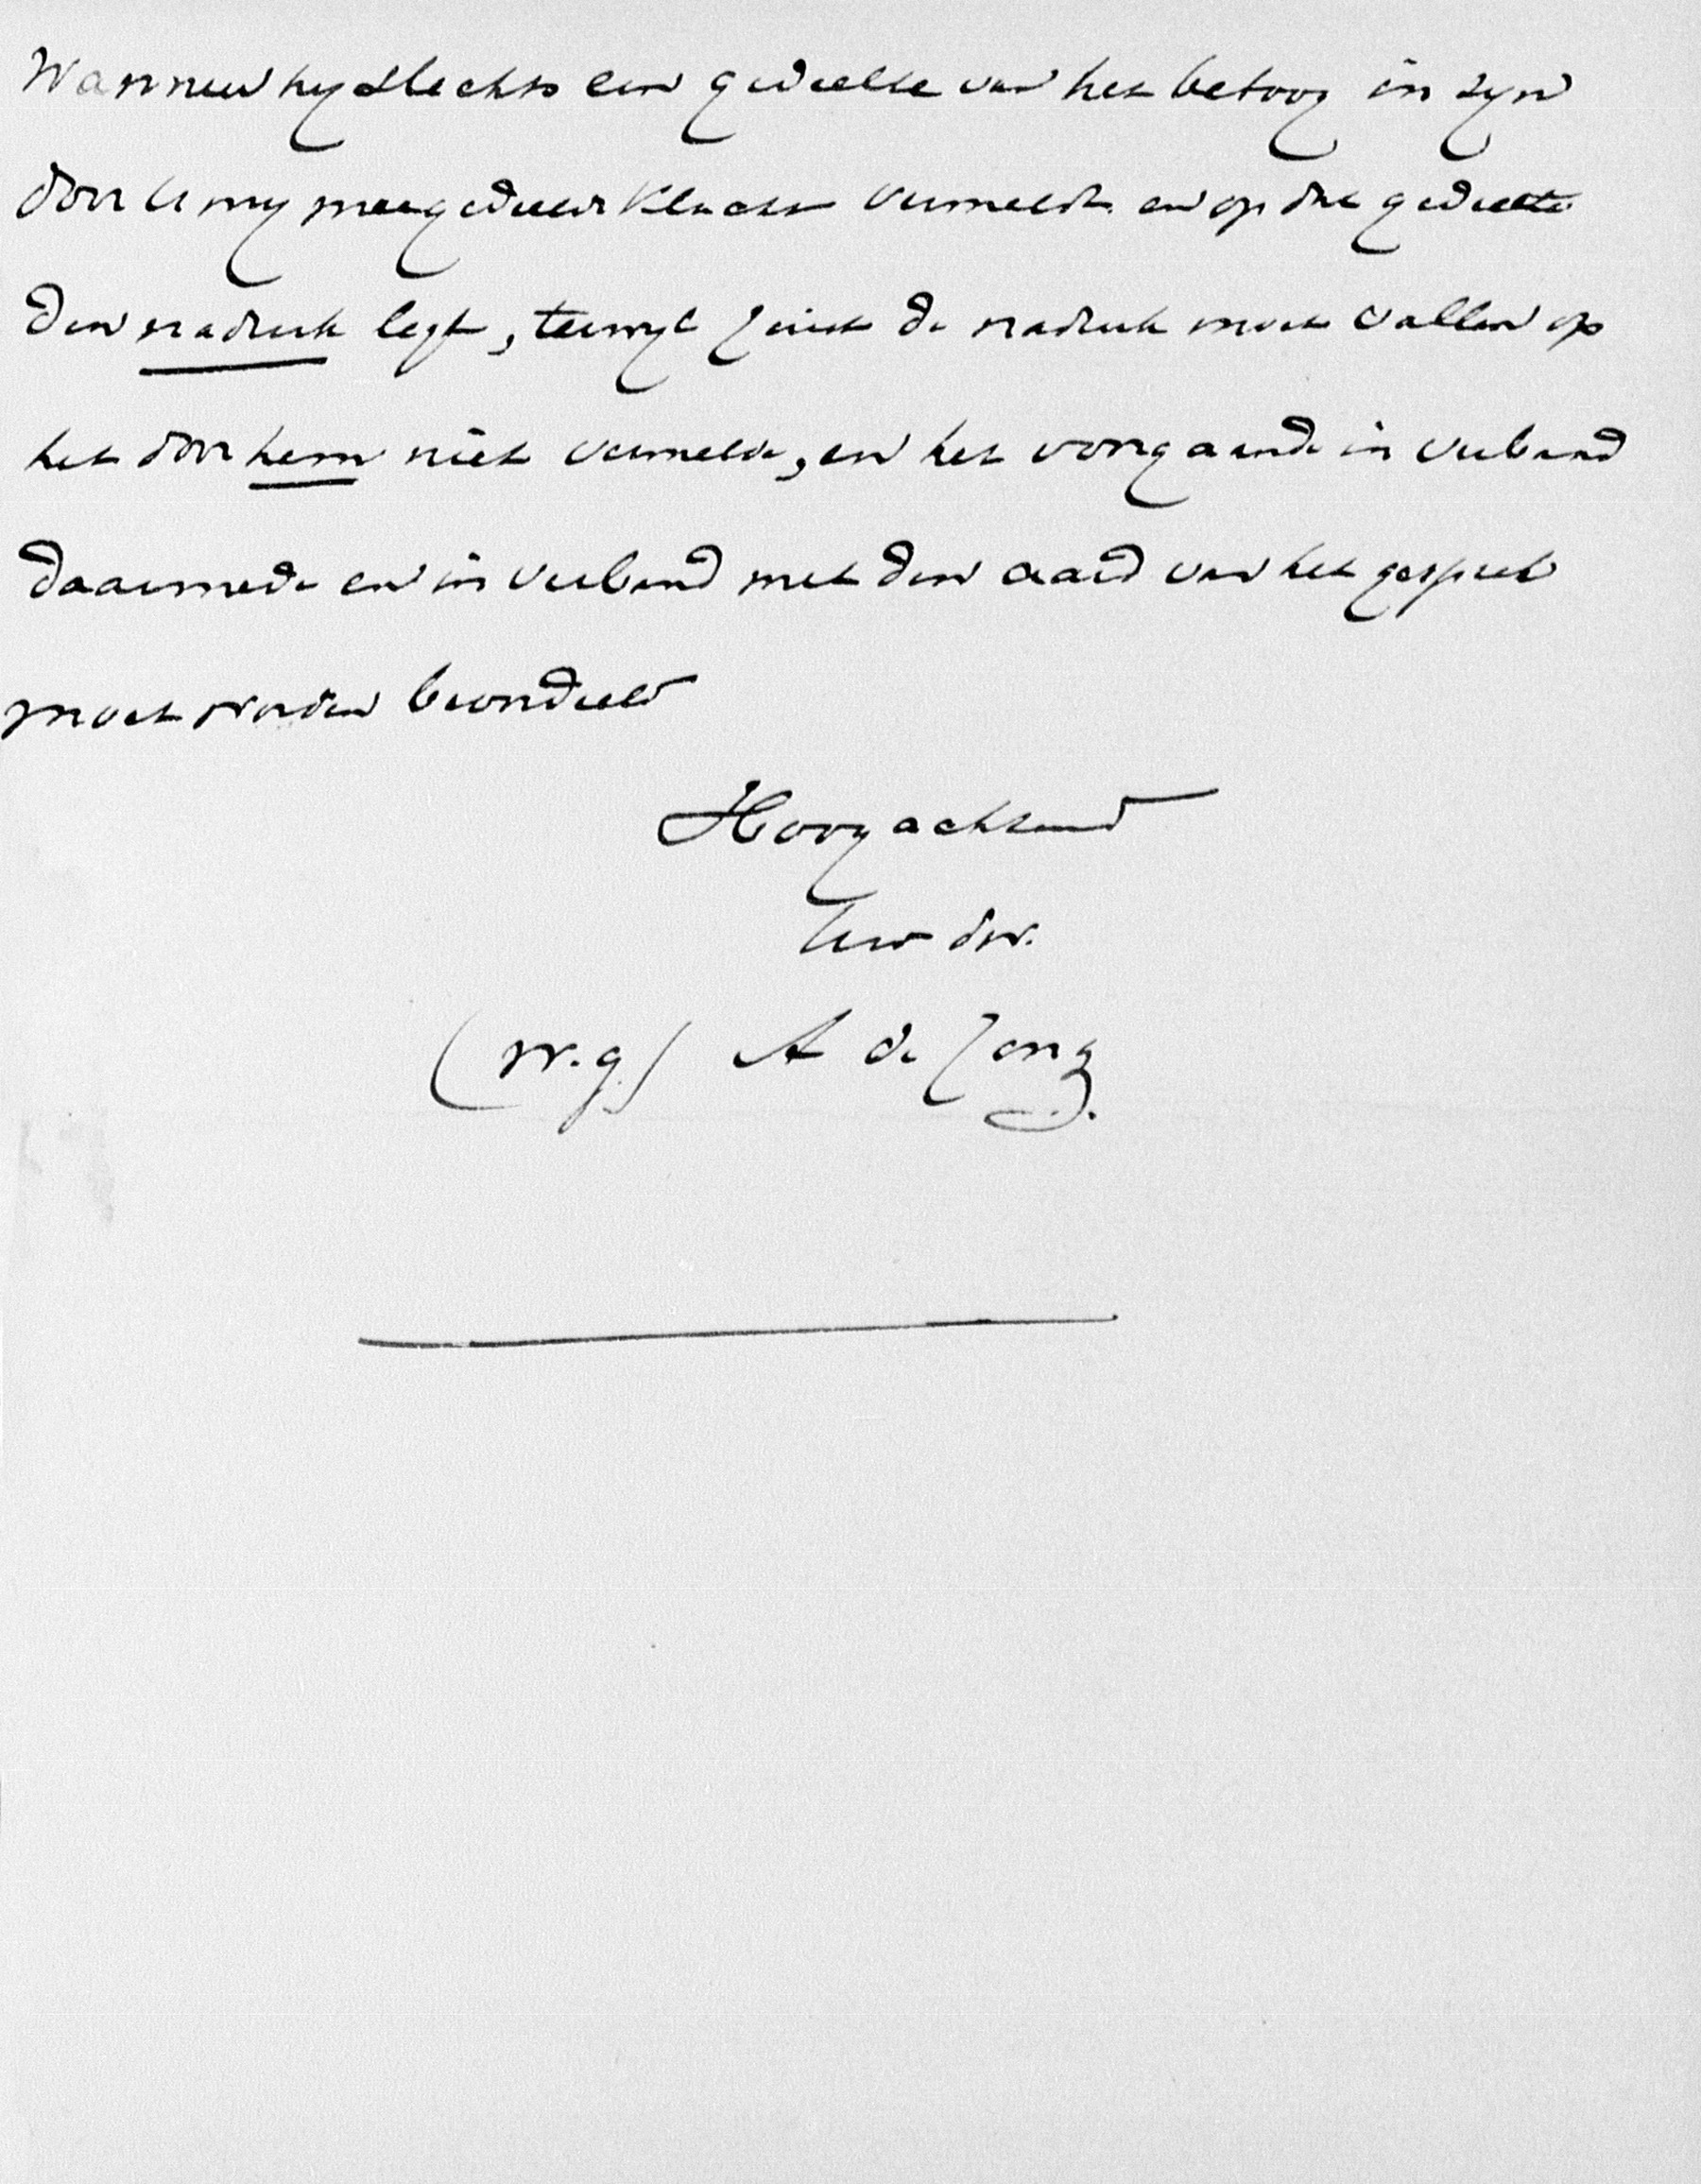 Wanneer hy slechts een gedeelte van het betoog in zyn
door U my meegedeelde klacht vermeldt en op dat gedeelte
den nadruk legt, terwyl juist de nadruk moet vallen op
het door hem niet vermelde, en het voorgaande in verband
daarmede en in verband met den aard van het gesprek
moet worden beoordeeld
Hoogachtend
Uw dw.
(w.g.) A de Jong.